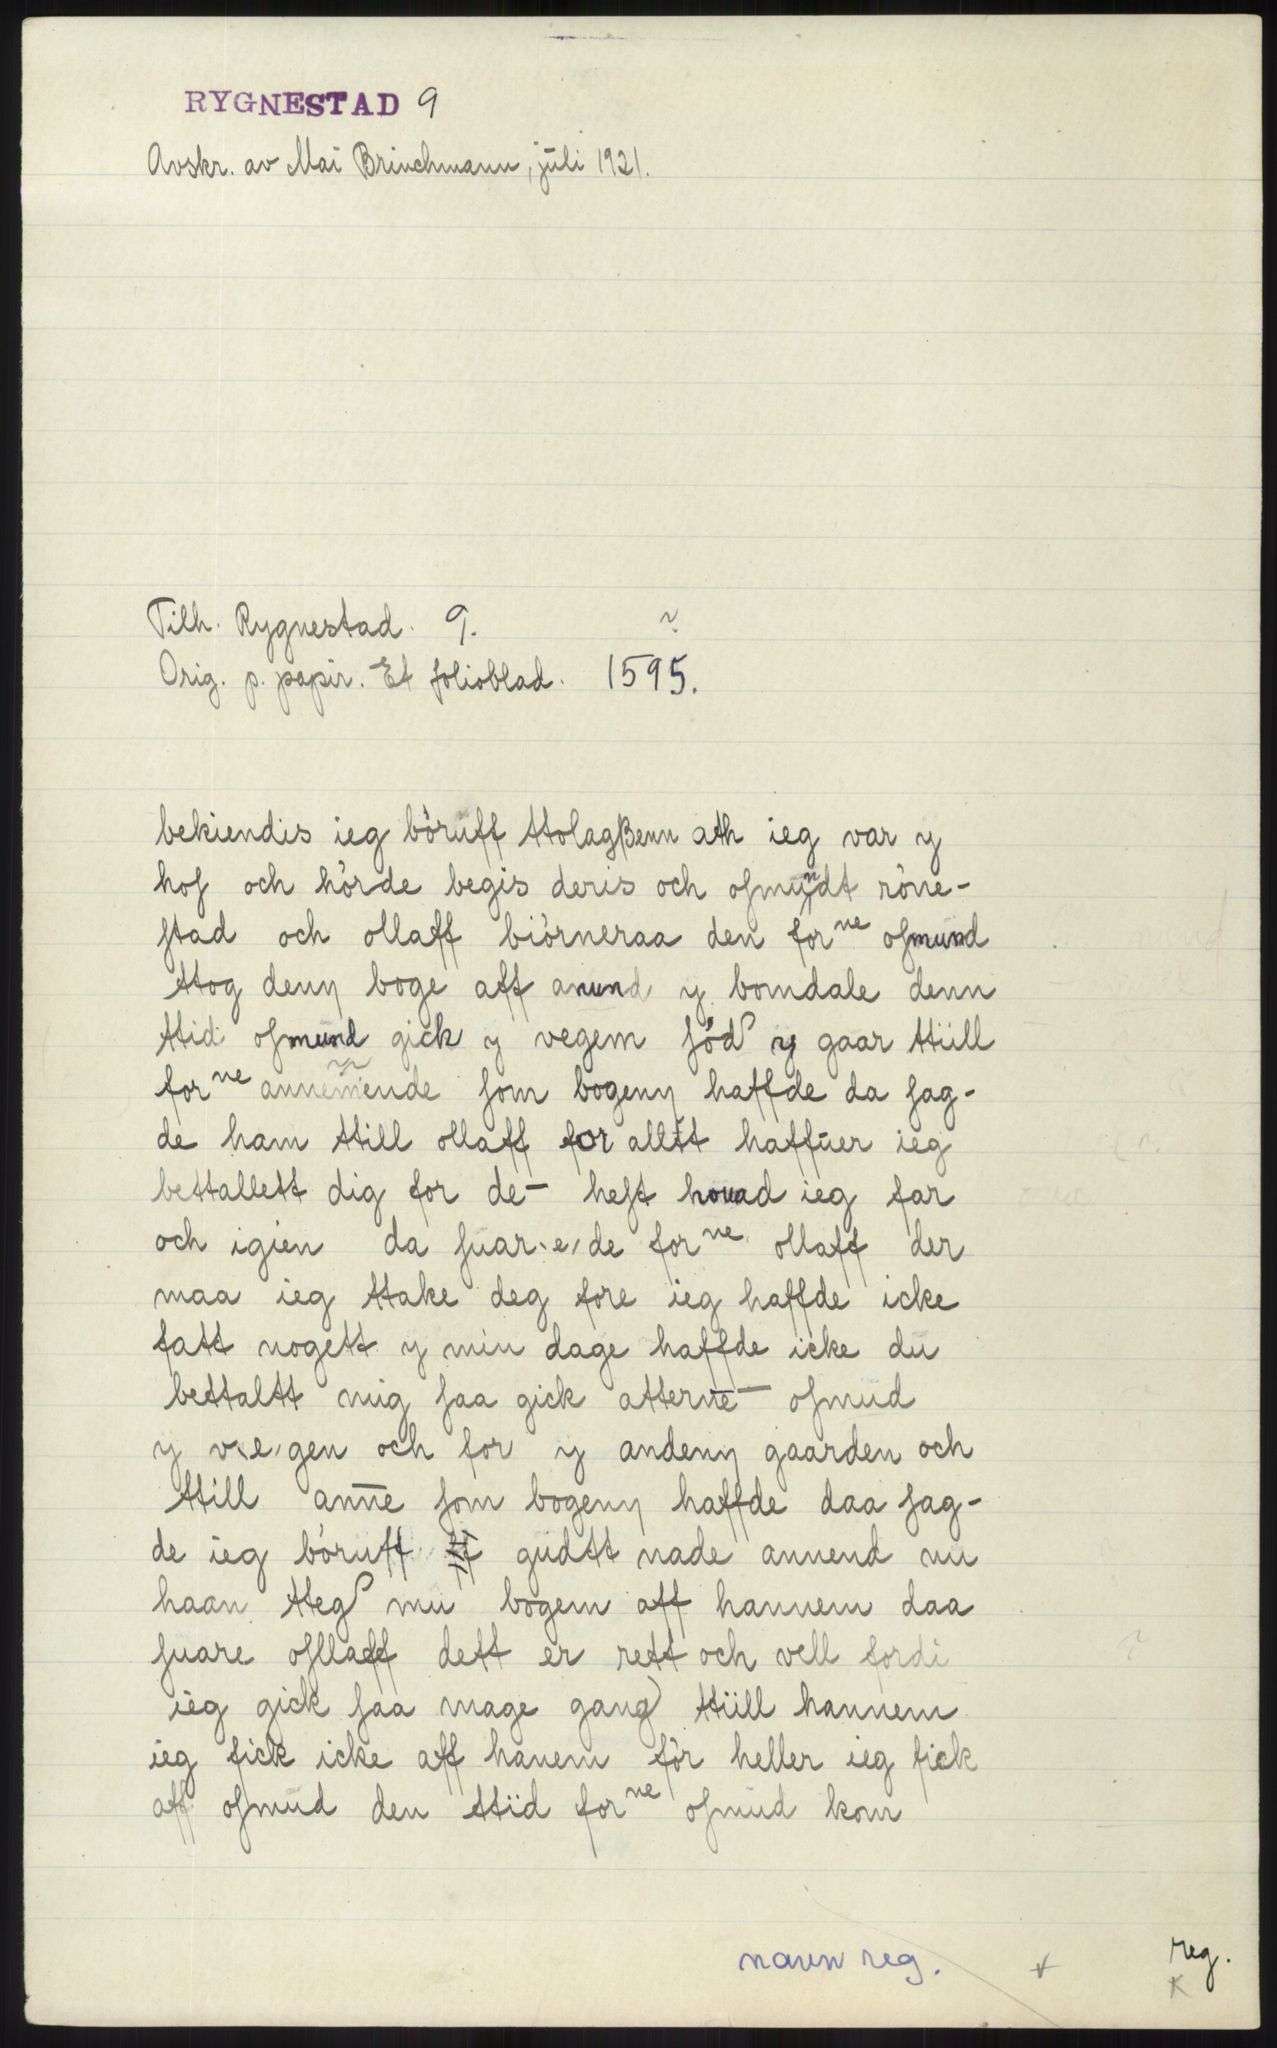 RYGNESTAD 9
Avskr. av Mai Brinchmann, juli 1921.
Tilh. Rygnestad. 9. ?
Orig. p. papir. Et folioblad. 1595.
bekiendis ieg böruff ttolagßenn ath ieg var y
hof och hörde begis deris och ofmundt röne-
ſtad och ollaff biörneraa den for ne oſmund
ttog denn boge aff anund y bomdale denn
ttid oſmund gick y vegem ſöd y gaar ttiill
for ne annemende ſom bogenn haffde da ſag-
de ham ttill ollaff for alltt haffuer ieg
bettallett dig for de- heſt houad ieg far
och igien da ſuar e de for ne ollaff der
maa ieg ttake deg fore ieg haffde icke
fatt nogett y min dage haffde icke du
bettaltt mig ſaa gick atterne- oſmud
y v e gen och for y andenn gaarden och
ttill anne ſom bogenn haffde daa ſag-
de ieg böruff gudtt nade annend nu
haan tteg mu bogem aff hannem daa
ſuare ofllaff dett er rett och vell fordi
ieg gick ſaa mage gang ttiill hannem
ieg fick icke aff hanem för heller ieg fick
aff oſmud den ttid for ne oſmud kom
navn reg.
reg.